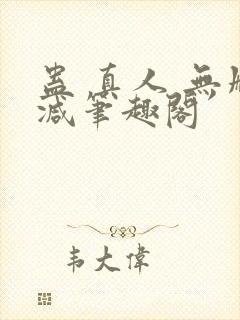 蛊真人 無
减筆趣閣
韦大偉